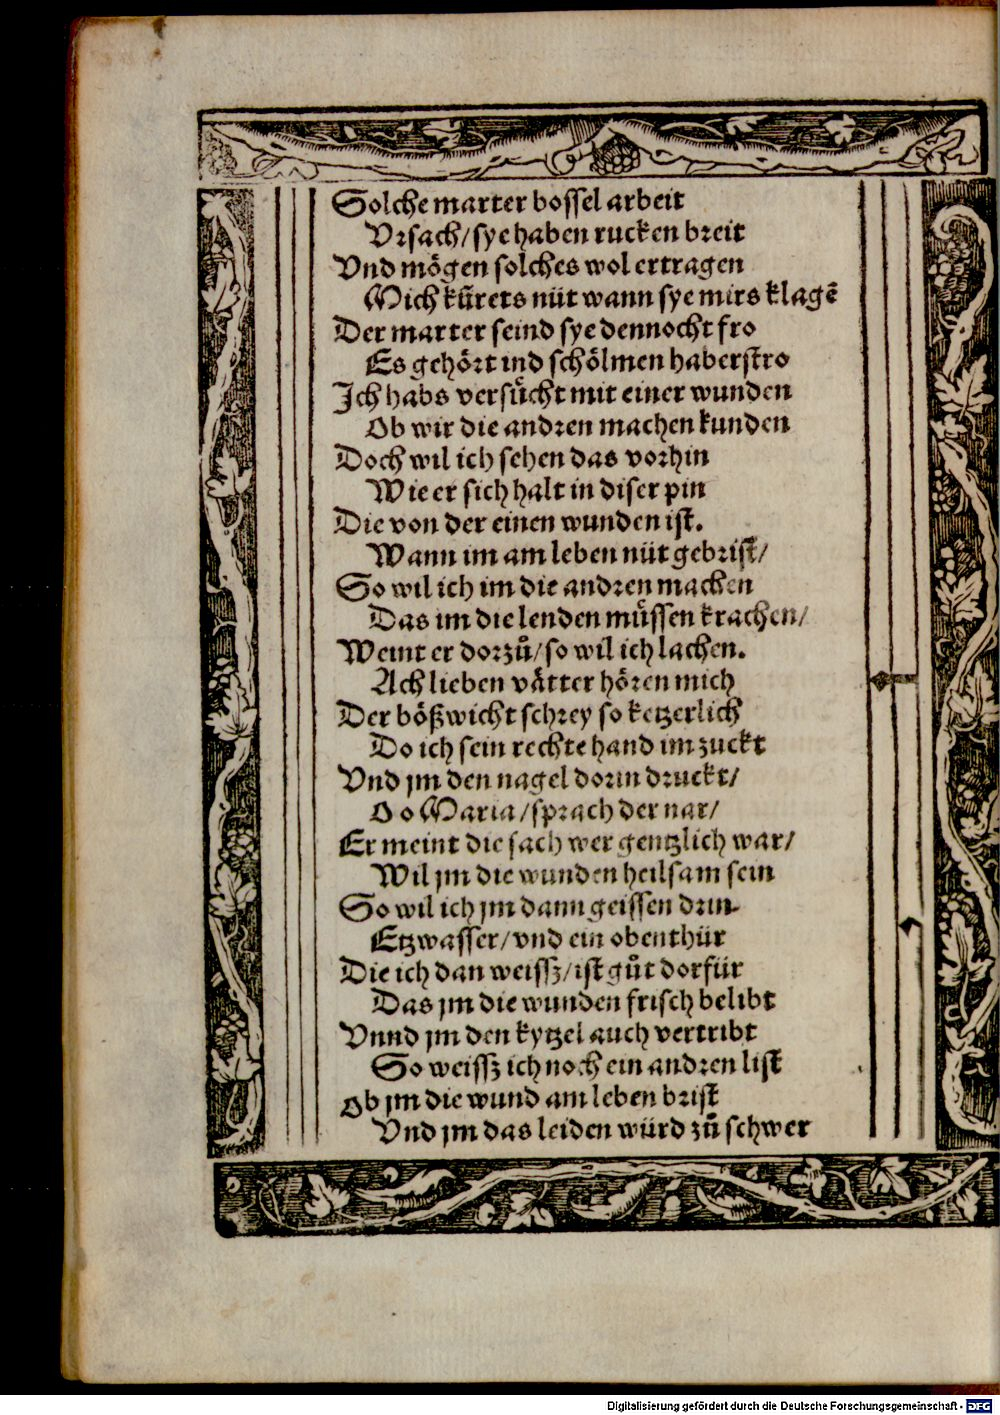 Solche marter bossel arbeit
Vrsach/ sye haben rucken breit
Vnd mögen solches wol ertragen
Mich kürets nüt wann sye mirs klagẽ
Der marter seind sye dennocht fro
Es gehört ind schölmen haberstro
Ich habs versůcht mit einer wunden
Ob wir die andren machen kunden
Doch wil ich sehen das vorhin
Wie er sich halt in diser pin
Die von der einen wunden ist.
Wann im am leben nüt gebrist/
So wil ich im die andren machen
Das im die lenden müssen krachen/
Weint er dorzů/ so wil ich lachen.
Ach lieben vätter hören mich
Der bößwicht schrey so ketzerlich
Do ich sein rechte hand im zuckt
Vnd jm den nagel dorin druckt/
O o Maria/ sprach der nar/
Er meint die sach wer gentzlich war/
Wil jm die wunden heilsam sein
So wil ich jm dann geissen drin.
Etzwasser/ vnd ein obenthür
Die ich dan weissz/ ist gůt dorfür
Das jm die wunden frisch belibt
Vnnd jm den kytzel auch vertribt
So weissz ich noch ein andren list
Ob jm die wund am leben brist
Vnd jm das leiden würd zů schwer
Digitalisierung gefördert durch die Deutsche Forschungsgemeinschaft - DFG